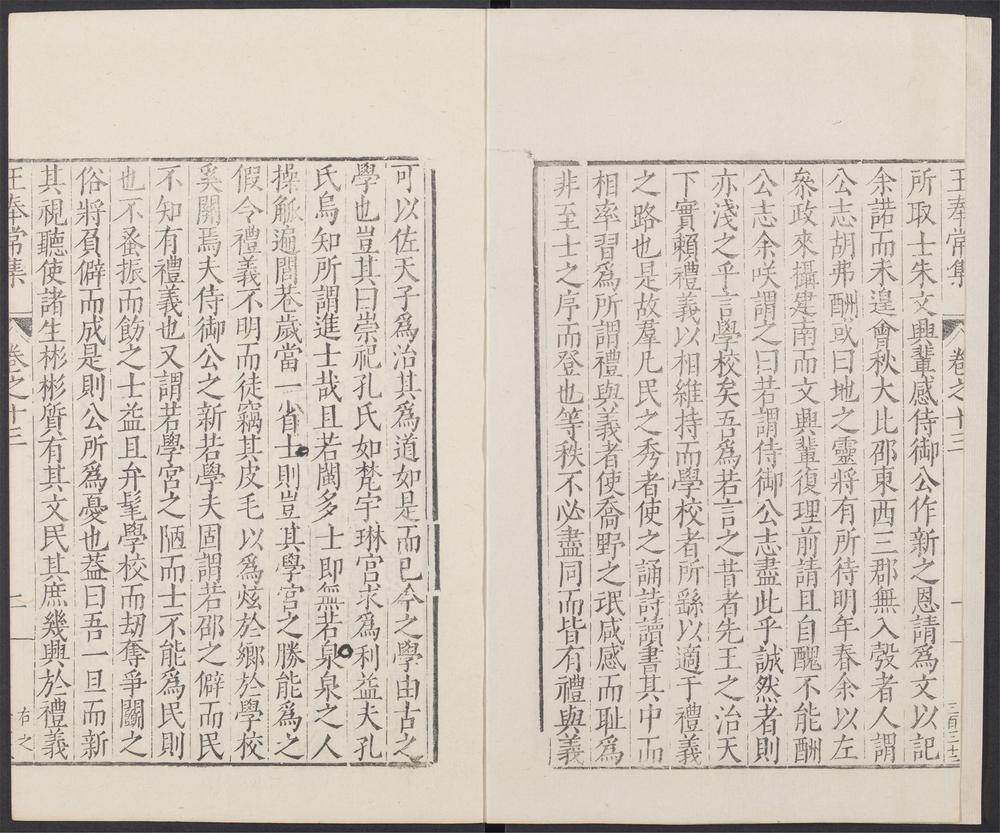 王奉常集 卷之十三 一 三百三十三
所取士朱文興輩感侍御公作新之恩請爲文以記
余諾而未遑會秋大比邵東西三郡無入彀者人謂
公志胡弗酬或曰地之靈將有所待明年春余以左
叅政來攝建南而文興輩復理前請且自醜不能酬
公志余咲謂之曰若謂侍御公志盡此乎誠然者則
亦淺之乎言學校矣吾爲若言之昔者先王之治天
下實賴禮義以相維持而學校者所繇以適于禮義
之路也是故羣凡民之秀者使之誦詩讀書其中而
相率習爲所謂禮與義者使喬野之氓咸感而耻爲
非至士之序而登也等秩不必盡同而皆有禮與義
可以佐天子爲治其爲道如是而已今之學由古之
學也豈其曰崇祀孔氏如梵宇琳宮求爲利益夫孔
氏烏知所謂進士哉且若閩多士即無若泉泉之人
操觚遍閭巷歲當一省士則豈其學宮之勝能爲之
假令禮義不明而徒竊其皮毛以爲炫於鄉於學校
奚關焉夫侍御公之新若學夫固謂若邵之僻而民
不知有禮義也又謂若學宮之陋而士不能爲民則
也不蚤振而飭之士益且弁髦學校而刼奪爭鬭之
俗將負僻而成是則公所爲憂也葢曰吾一旦而新
其視聽使諸生彬彬質有其文民其庶幾興於禮義
王奉常集 卷之十三